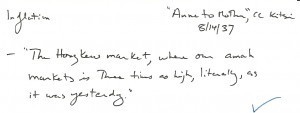 Inflation
"Anne to Mother," cc Kitsi
8/14/37
- "The Hongkew market, where our amah
markets is three times as high, literally, as
it was yesterday."